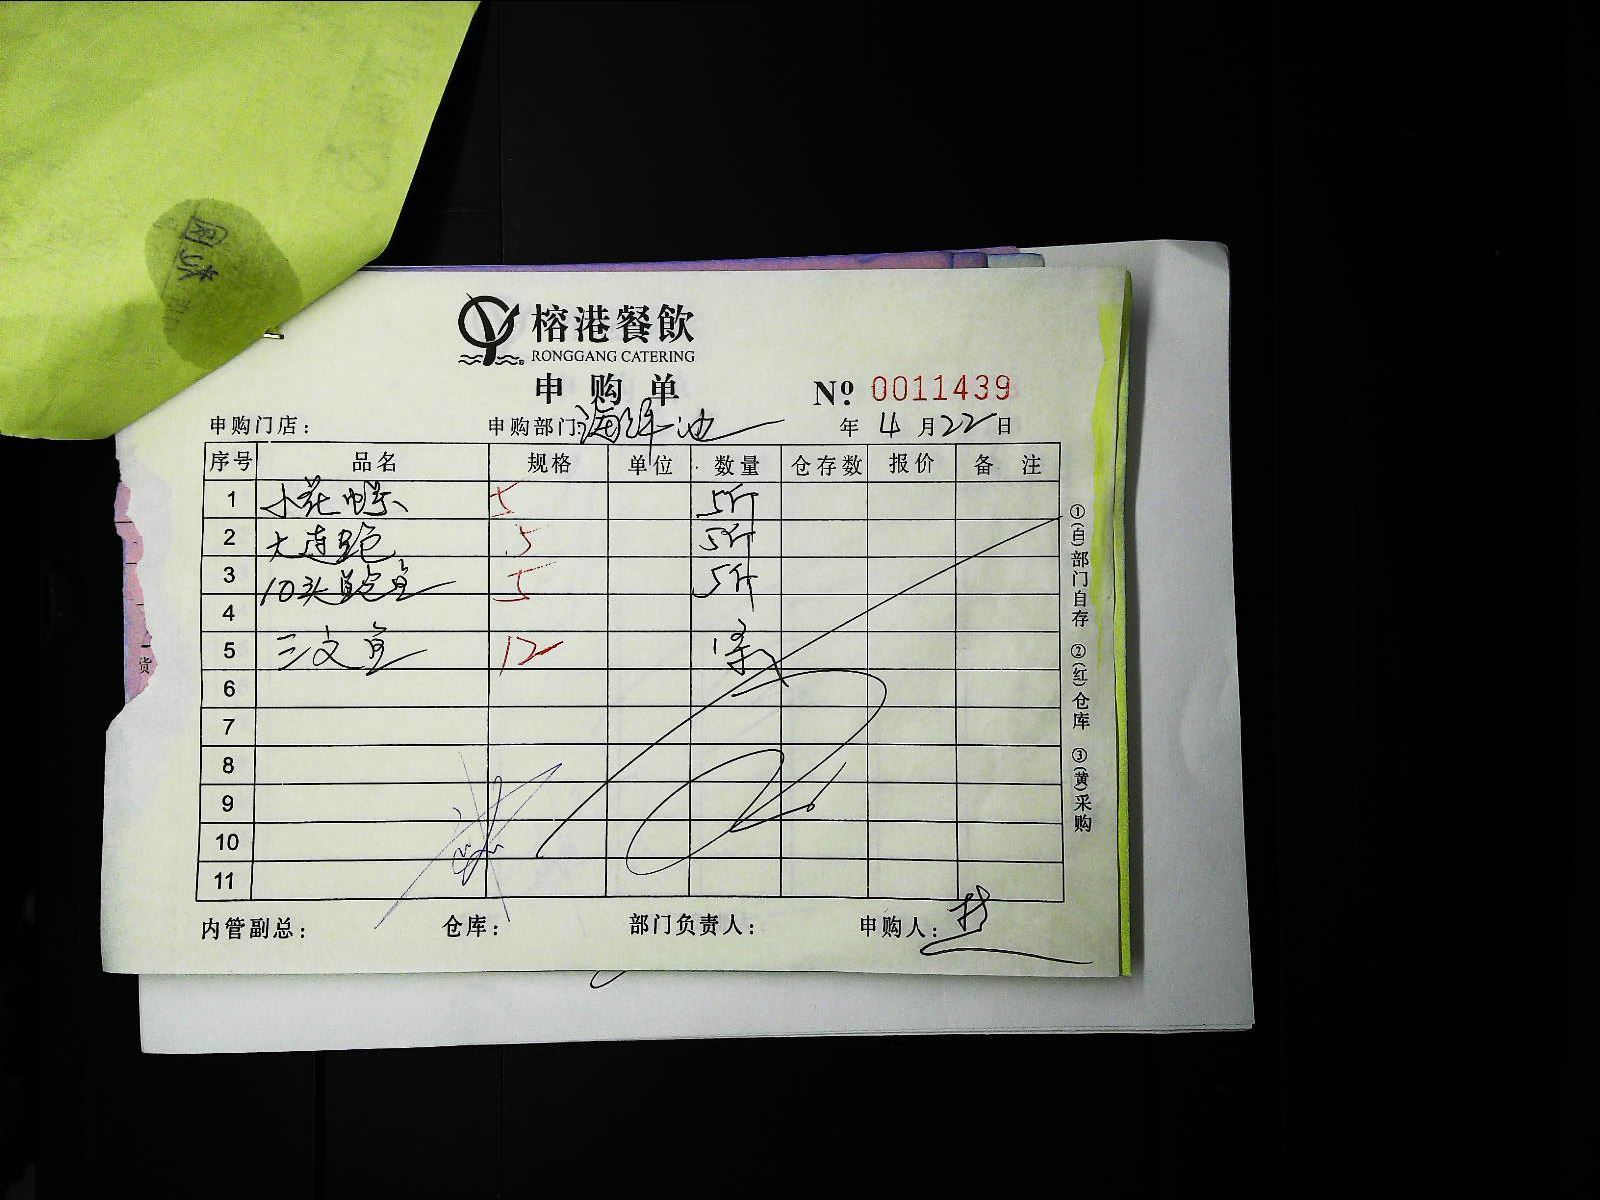 榕港餐飲
RONGGANG CATERING
申购单
№ 0011439
申购门店： 申购部门：海鲜池 年 4月22日
序号 品名 规格 单位 数量 仓存数 报价 备注
1 小花螺 5 5斤
2 大连鲍 5 5斤
3 10头鲍鱼 5 5斤
4
5 三文鱼 12 1条
6
7
8
9
10
11
内管副总： 仓库： 部门负责人： 申购人：
①(白)部门自存 ②(红)仓库 ③(黄)采购
货